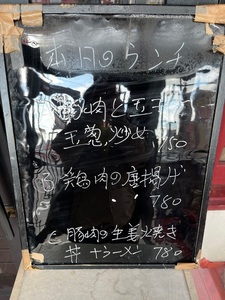 本日のランチ
豚肉と玉子
玉葱炒め 750
B 鶏肉の唐揚げ
780
C 豚肉の生姜焼き
丼 +ラーメン 780